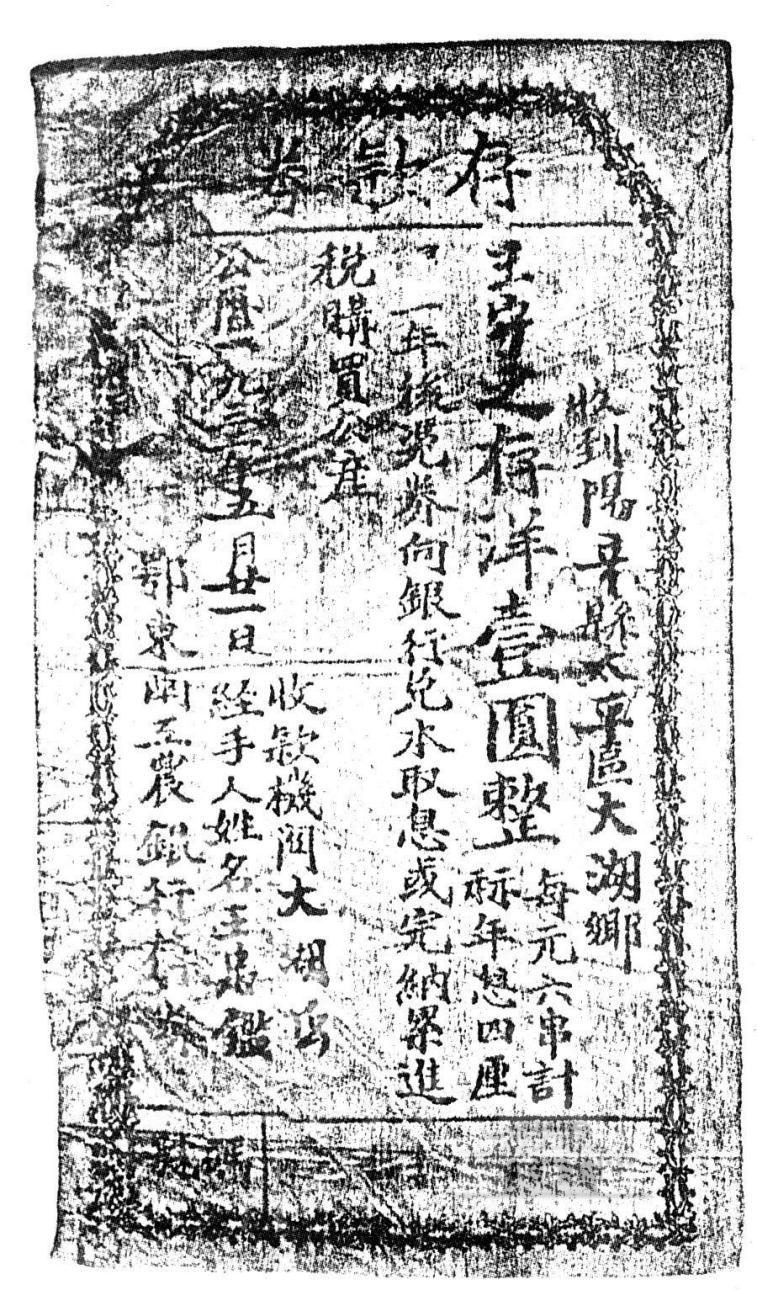 存款券
收到陽新縣太平區大湖鄉
王守之存洋壹圓整
每元六串計
稱年息四厘
一年後憑券向銀行兌本取息或完納累進
稅購買公產
公曆一九三年五月廿一日
收款機関大湖
経手人姓名王忠鑑
鄂東南工農銀行
號碼